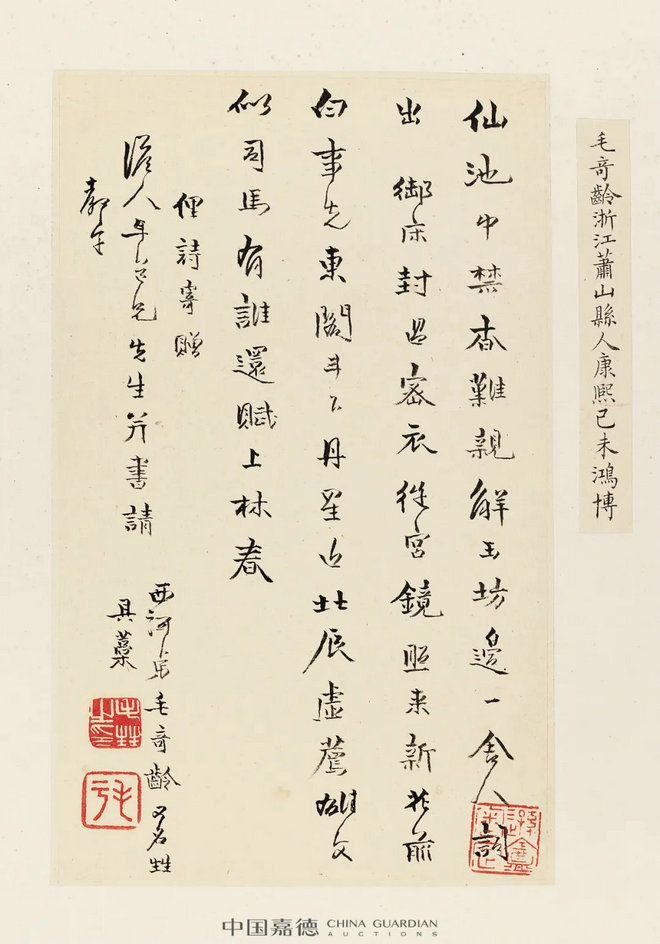 毛奇齡浙江蕭山縣人康熙己未鴻博
仙池中禁杳難親解玉坊邊一舍人詞
出御床封過密衣從宮鏡照來新花前
白事先東閣斗下丹星近北辰虛薦雄文
似司馬有誰還賦上林春
俚詩寄贈
澹人年兄先生并書請
教
西河弟毛奇齡又名甡
具藁
中国嘉德 CHINA GUARDIAN
AUCTIONS